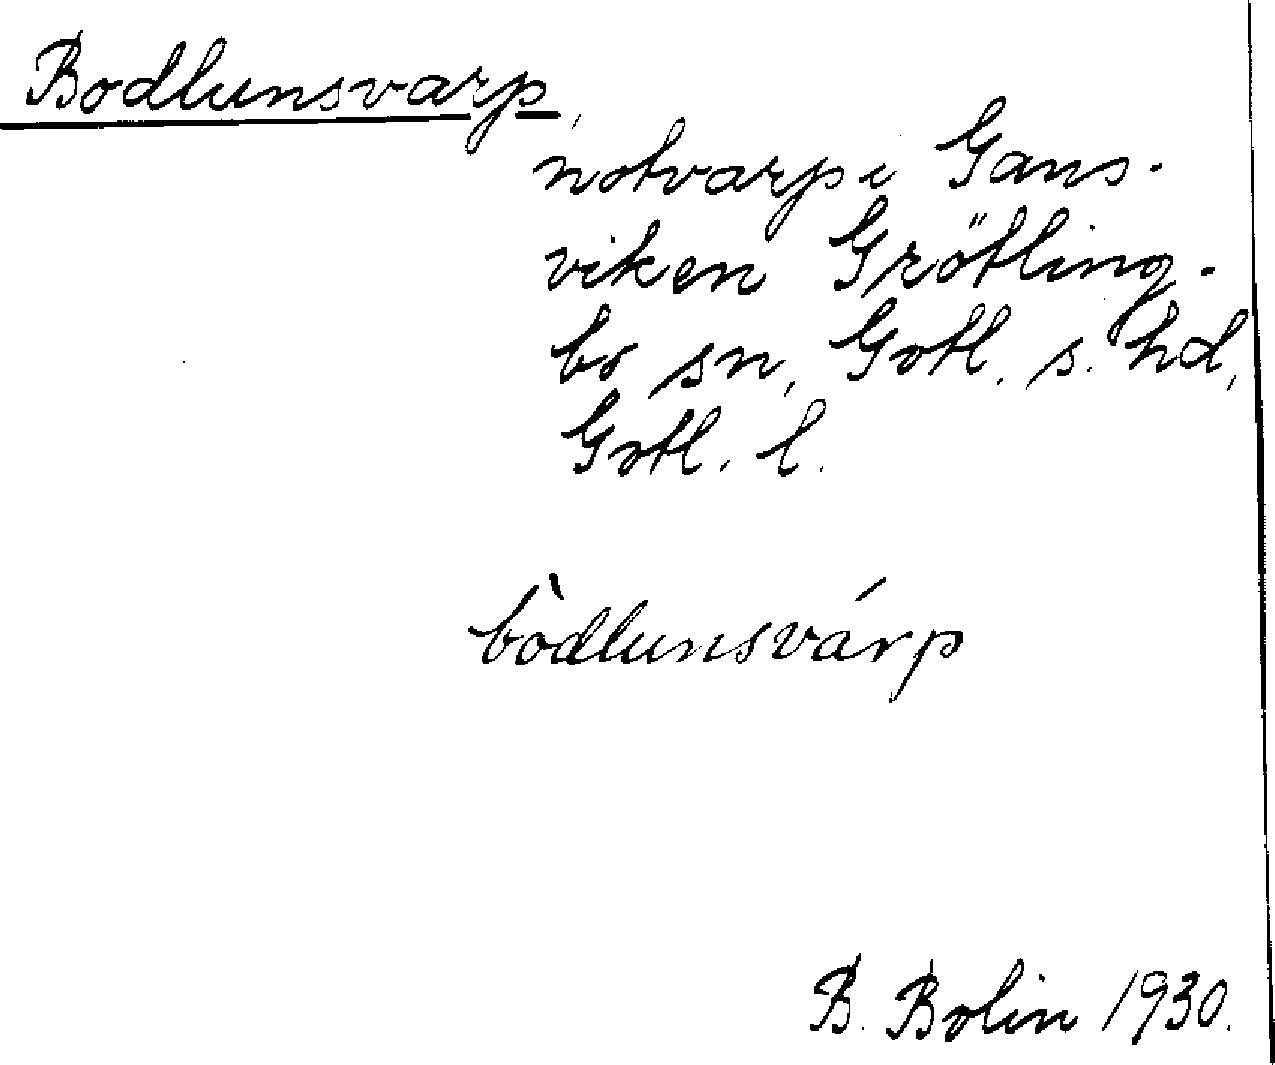 Bodlunsvarp,
notvarp i Gans-
viken Grötling-
bo sn, Gotl. s. hd,
Gotl. l.
bòdlunsvárp
B. Bolin 1930.